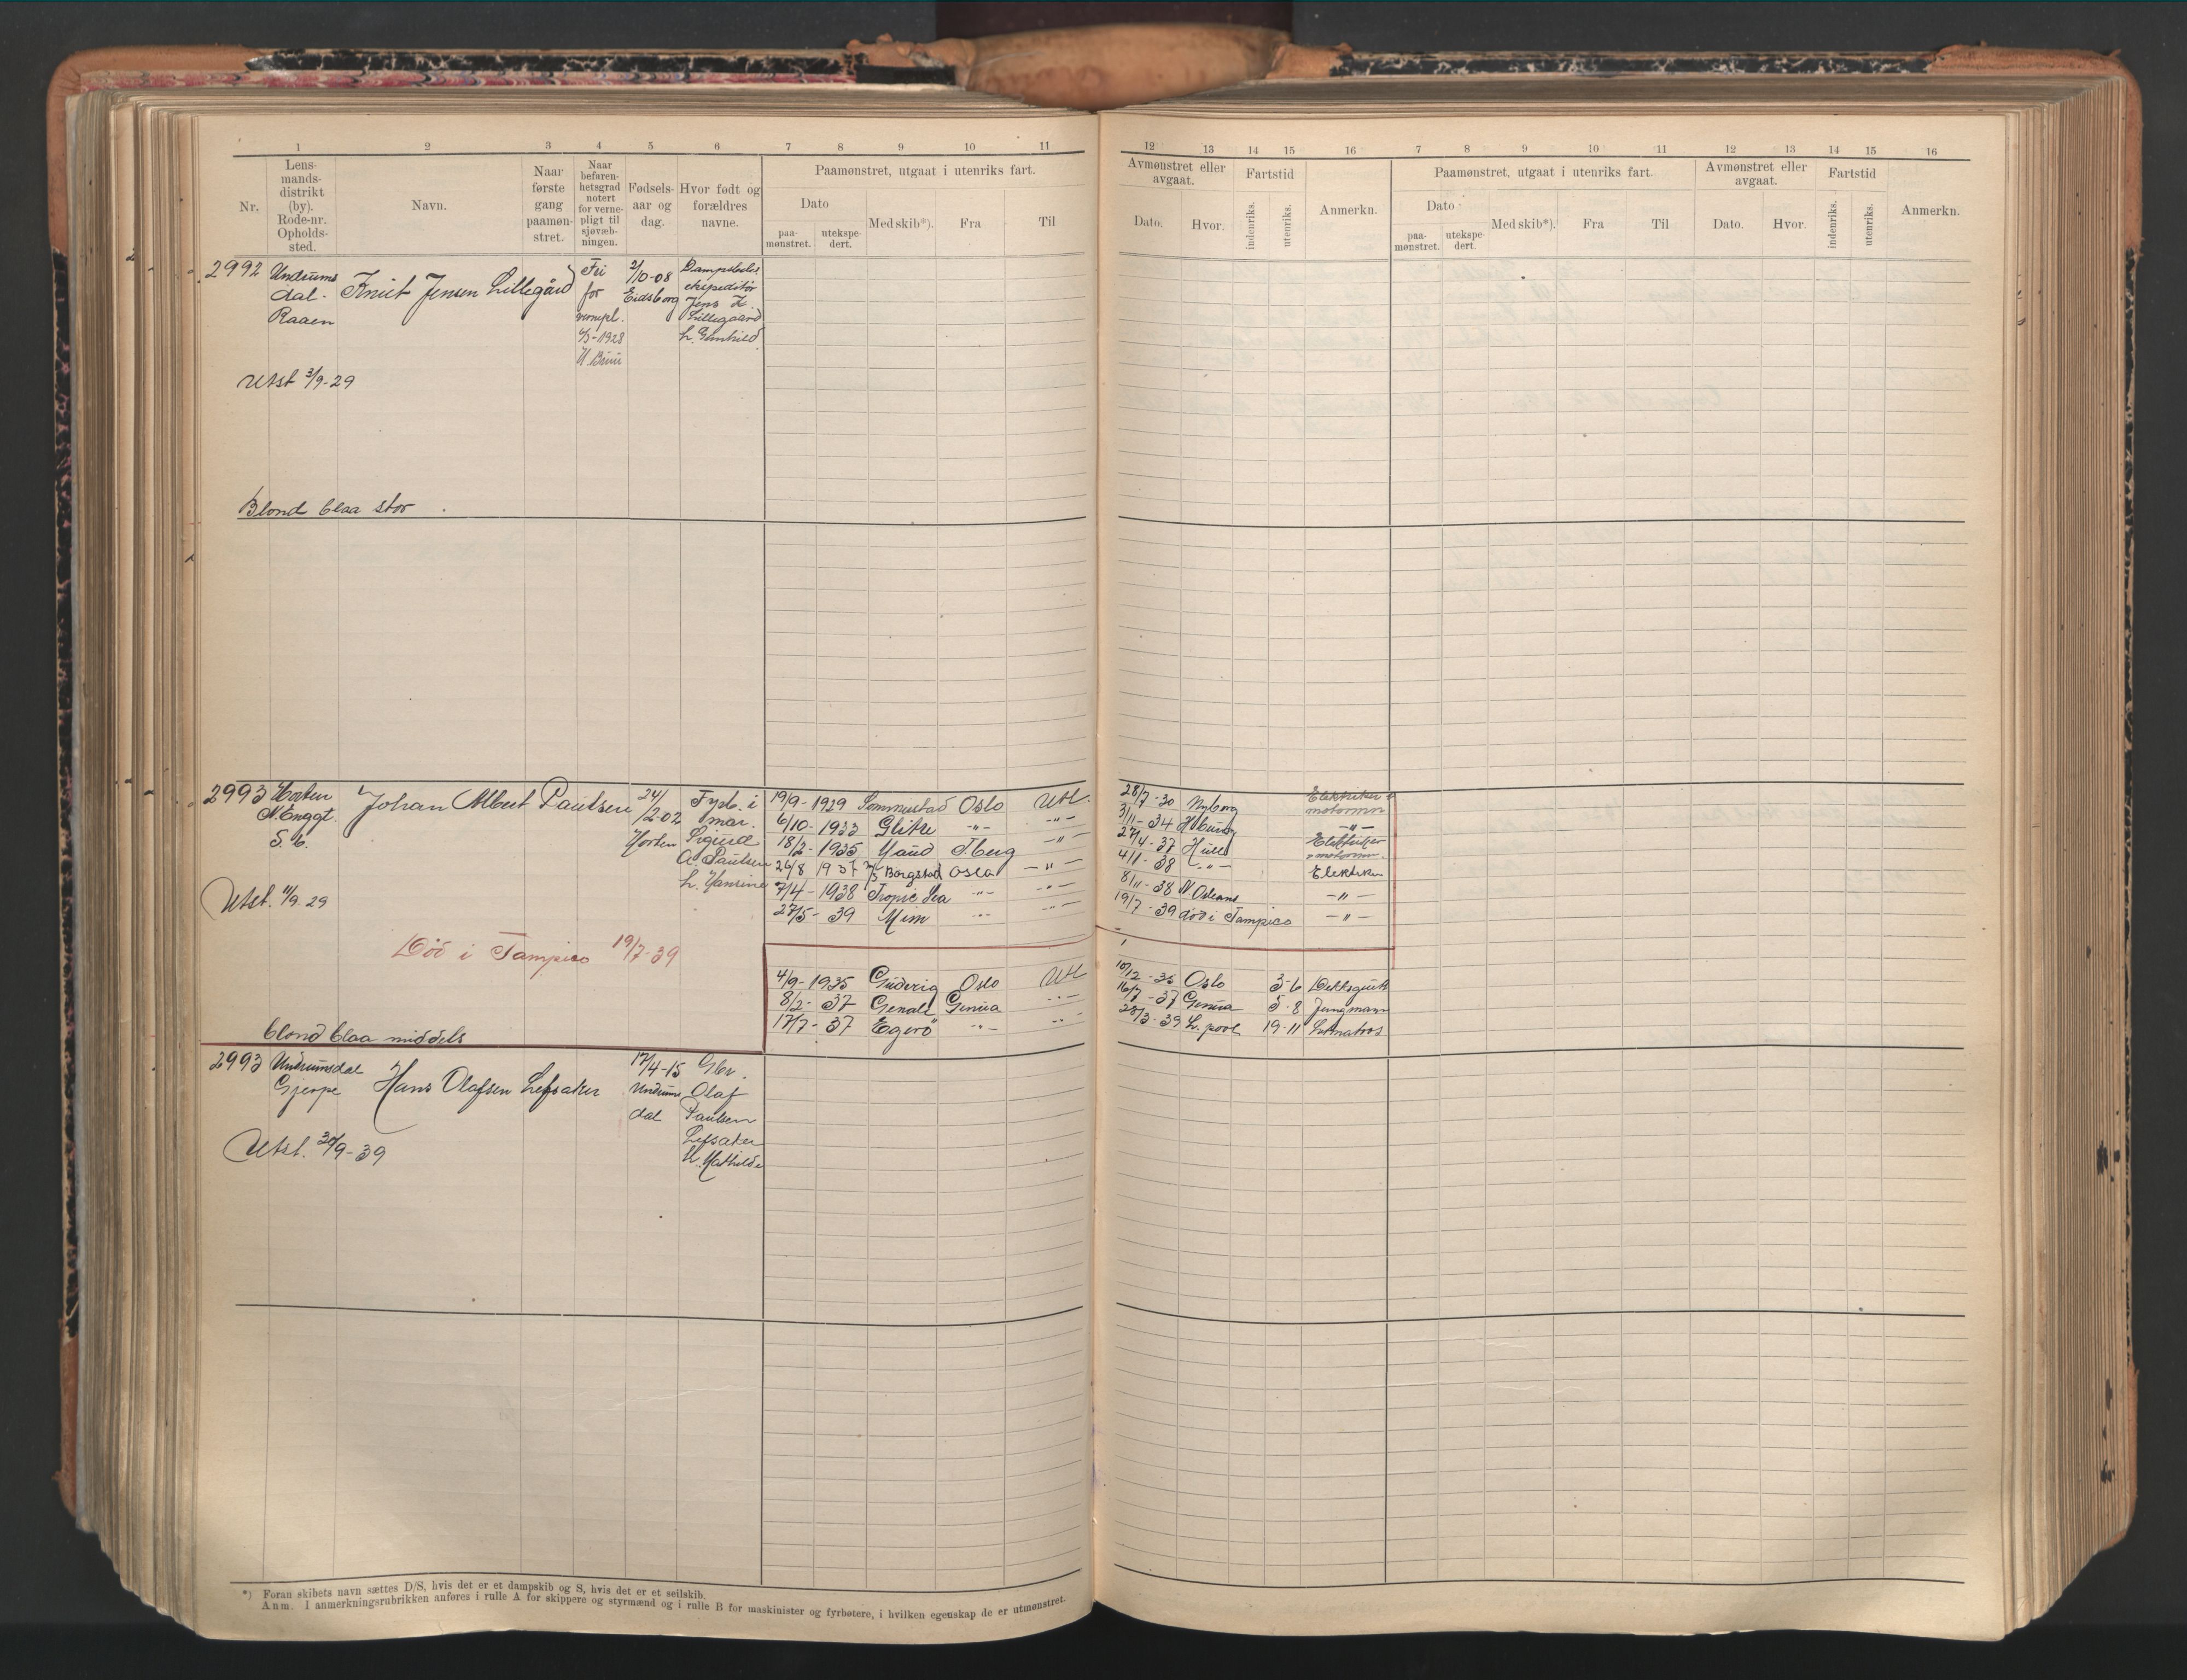 1 2 3 4 5 6 7 8 9 10 11
Nr.
Lens-
mands-
distrikt
(by).
Rode-nr.
Opholds-
sted.
Navn.
Naar
første
gang
paamøn-
stret.
Naar
befaren-
hetsgrad
notert
for verne-
pligt til
sjøvæb-
ningen.
Fødsels-
aar og
dag.
Hvor født og
forældres
navne.
Paamønstret, utgaat i utenriks fart.
Dato
paa-
mønstret.
utekspe-
dert.
Med skib*).
Fra
Til
2992
Undrums
dal.
Raaen
Knut Jensen Lillegård
Fri
for
vernepl.
1928
2/10-08
Eidsborg
Dampskibs
ekspeditør
Jens
Lillegaard
h. Gunhild
Utst 3/9-29
Blond blaa stor
2993 Horten
N. Enggt.
5. b.
Johan Albert Paulsen
24/
/2-02
Horten
Fyrb. i
mar.
Sigurd
A. Paulsen
h. Hansine
Utst. 11/9 29
Død i Tampico 19/7-39
blond blaa middels
19/9-1929 Sommerstad Oslo Utl.
6/10-1933 Glitre -"- -"-
18/2-1935 Maud T.berg -"-
26/8 1937 M/S Borgstad Oslo -"-
7/4-1938 Tropic Sea -"- -"-
27/5-39 Mim -"- -"-
4/9-1935 Guderig Oslo Utl
8/2-37 Genale Genua -"-
17/7-37 Egerö -"- -"-
2993 Undrumsdal
Gjerpe
Hans Olafsen Lefsaker
17/4-15
Undrums
dal
Gbr.
Olaf
Paulsen
Lefsaker
M. Mathilde
Utst. 30/9-39
*) Foran skibets navn sættes D/S, hvis det er et dampskib og S, hvis det er et seilskib.
Anm. I anmerkningsrubrikken anføres i rulle A for skippere og styrmænd og i rulle B for maskinister og fyrbøtere, i hvilken egenskap de er utmønstret.
12 13 14 15 16 7 8 9 10 11 12 13 14 15 16
Avmønstret eller
avgaat.
Dato.
Hvor.
Fartstid
indenriks.
utenriks.
Anmerkn.
Paamønstret, utgaat i utenriks fart.
Dato
paa-
mønstret.
utekspe-
dert.
Med skib*).
Fra
Til
Avmønstret eller
avgaat.
Dato.
Hvor.
Fartstid
indenriks.
utenriks.
Anmerkn.
28/7-30 Nyborg Elektriker
motormn
3/11-34 H.burg -"-
27/4-37 Hull Elektriker
motormn.
4/1-38 -"- Elektriker
8/11-38 N Orleans -"-
19/7-39 död i Tampico -"-
10/12-35 Oslo 3-6 Dekksgutt
16/7-37 Genua 5-8 Jungmann
28/3-39 L.pool 19-11 Lmatros